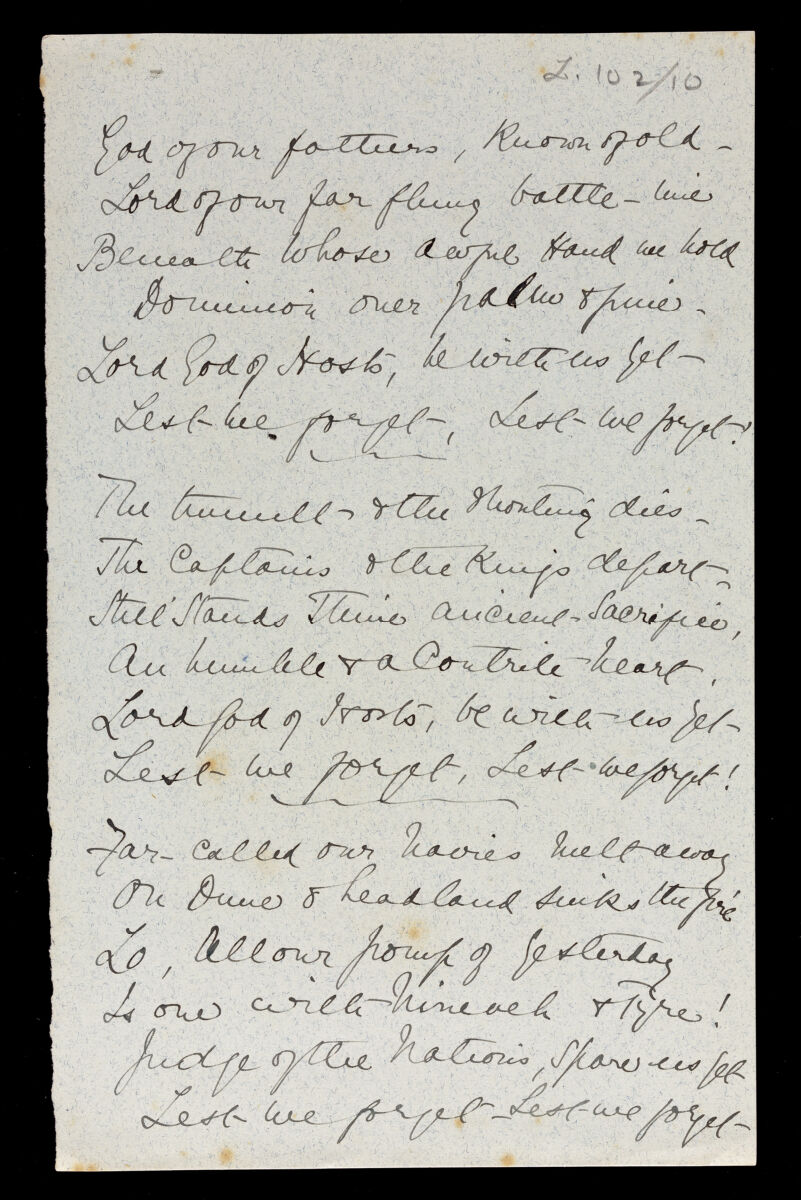 L. 102/10
God of our fathers, Known of old –
Lord of our far flung battle – line
Beneath Whose awful Hand we hold
Dominion over palm & pine –
Lord God of Hosts, be with us yet –
Lest we forget, Lest we forget!
The tumult & the Shouting dies –
The Captains & the Kings depart –
Still Stands Thine ancient Sacrifice,
An humble & a Contrite heart.
Lord God of Hosts, be with us yet –
Lest we forget, Lest we forget!
Far – called our Navies melt away
On Dune & headland sinks the fire
Lo, All our pomp of yesterday
Is one with Nineveh & Tyre!
Judge of the Nations, Spare us yet
Lest we forget – Lest we forget –